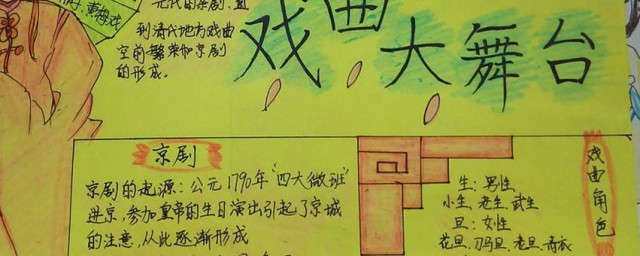 黄梅戏
元代的杂剧,直
到清代地方戏曲
空前繁荣和京剧
的形成。
戏曲大舞台
京剧
京剧的起源:公元1790年"四大徽班"
进京,参加皇帝的生日演出引起了京城
的注意,从此逐渐形成
生:男性
小生、老生、武生
旦:女性
花旦、刀马旦、老旦、青衣
戏曲角色